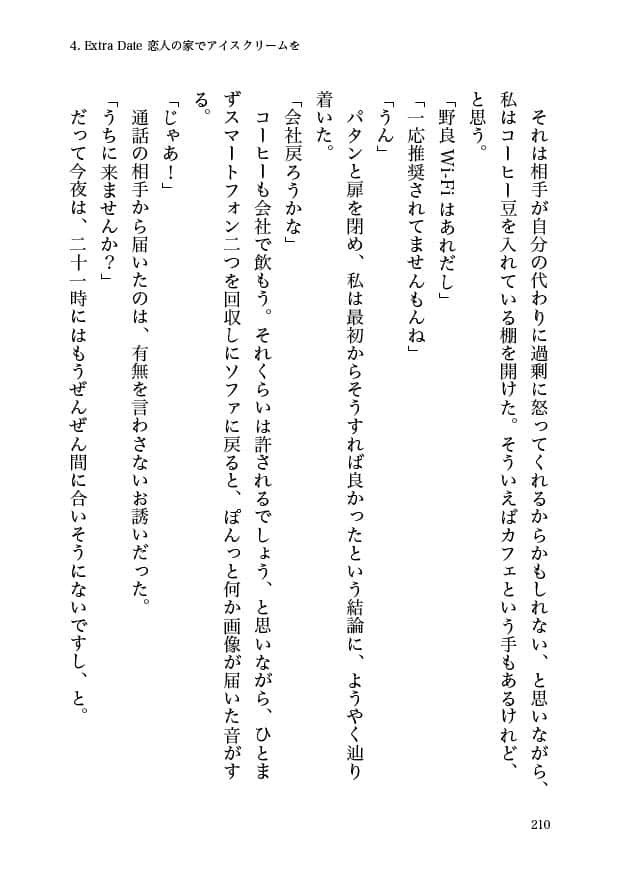 4. Extra Date 恋人の家でアイスクリームを
　それは相手が自分の代わりに過剰に怒ってくれるからかもしれない、と思いながら、
私はコーヒー豆を入れている棚を開けた。そういえばカフェという手もあるけれど、
と思う。
「野良 Wi-Fi はあれだし」
「一応推奨されてませんもんね」
「うん」
　パタンと扉を閉め、私は最初からそうすれば良かったという結論に、ようやく辿り
着いた。
「会社戻ろうかな」
　コーヒーも会社で飲もう。それくらいは許されるでしょう、と思いながら、ひとま
ずスマートフォン二つを回収しにソファに戻ると、ぽんっと何か画像が届いた音がす
る。
「じゃあ！」
　通話の相手から届いたのは、有無を言わさないお誘いだった。
「うちに来ませんか？」
　だって今夜は、二十一時にはもうぜんぜん間に合いそうにないですし、と。
210